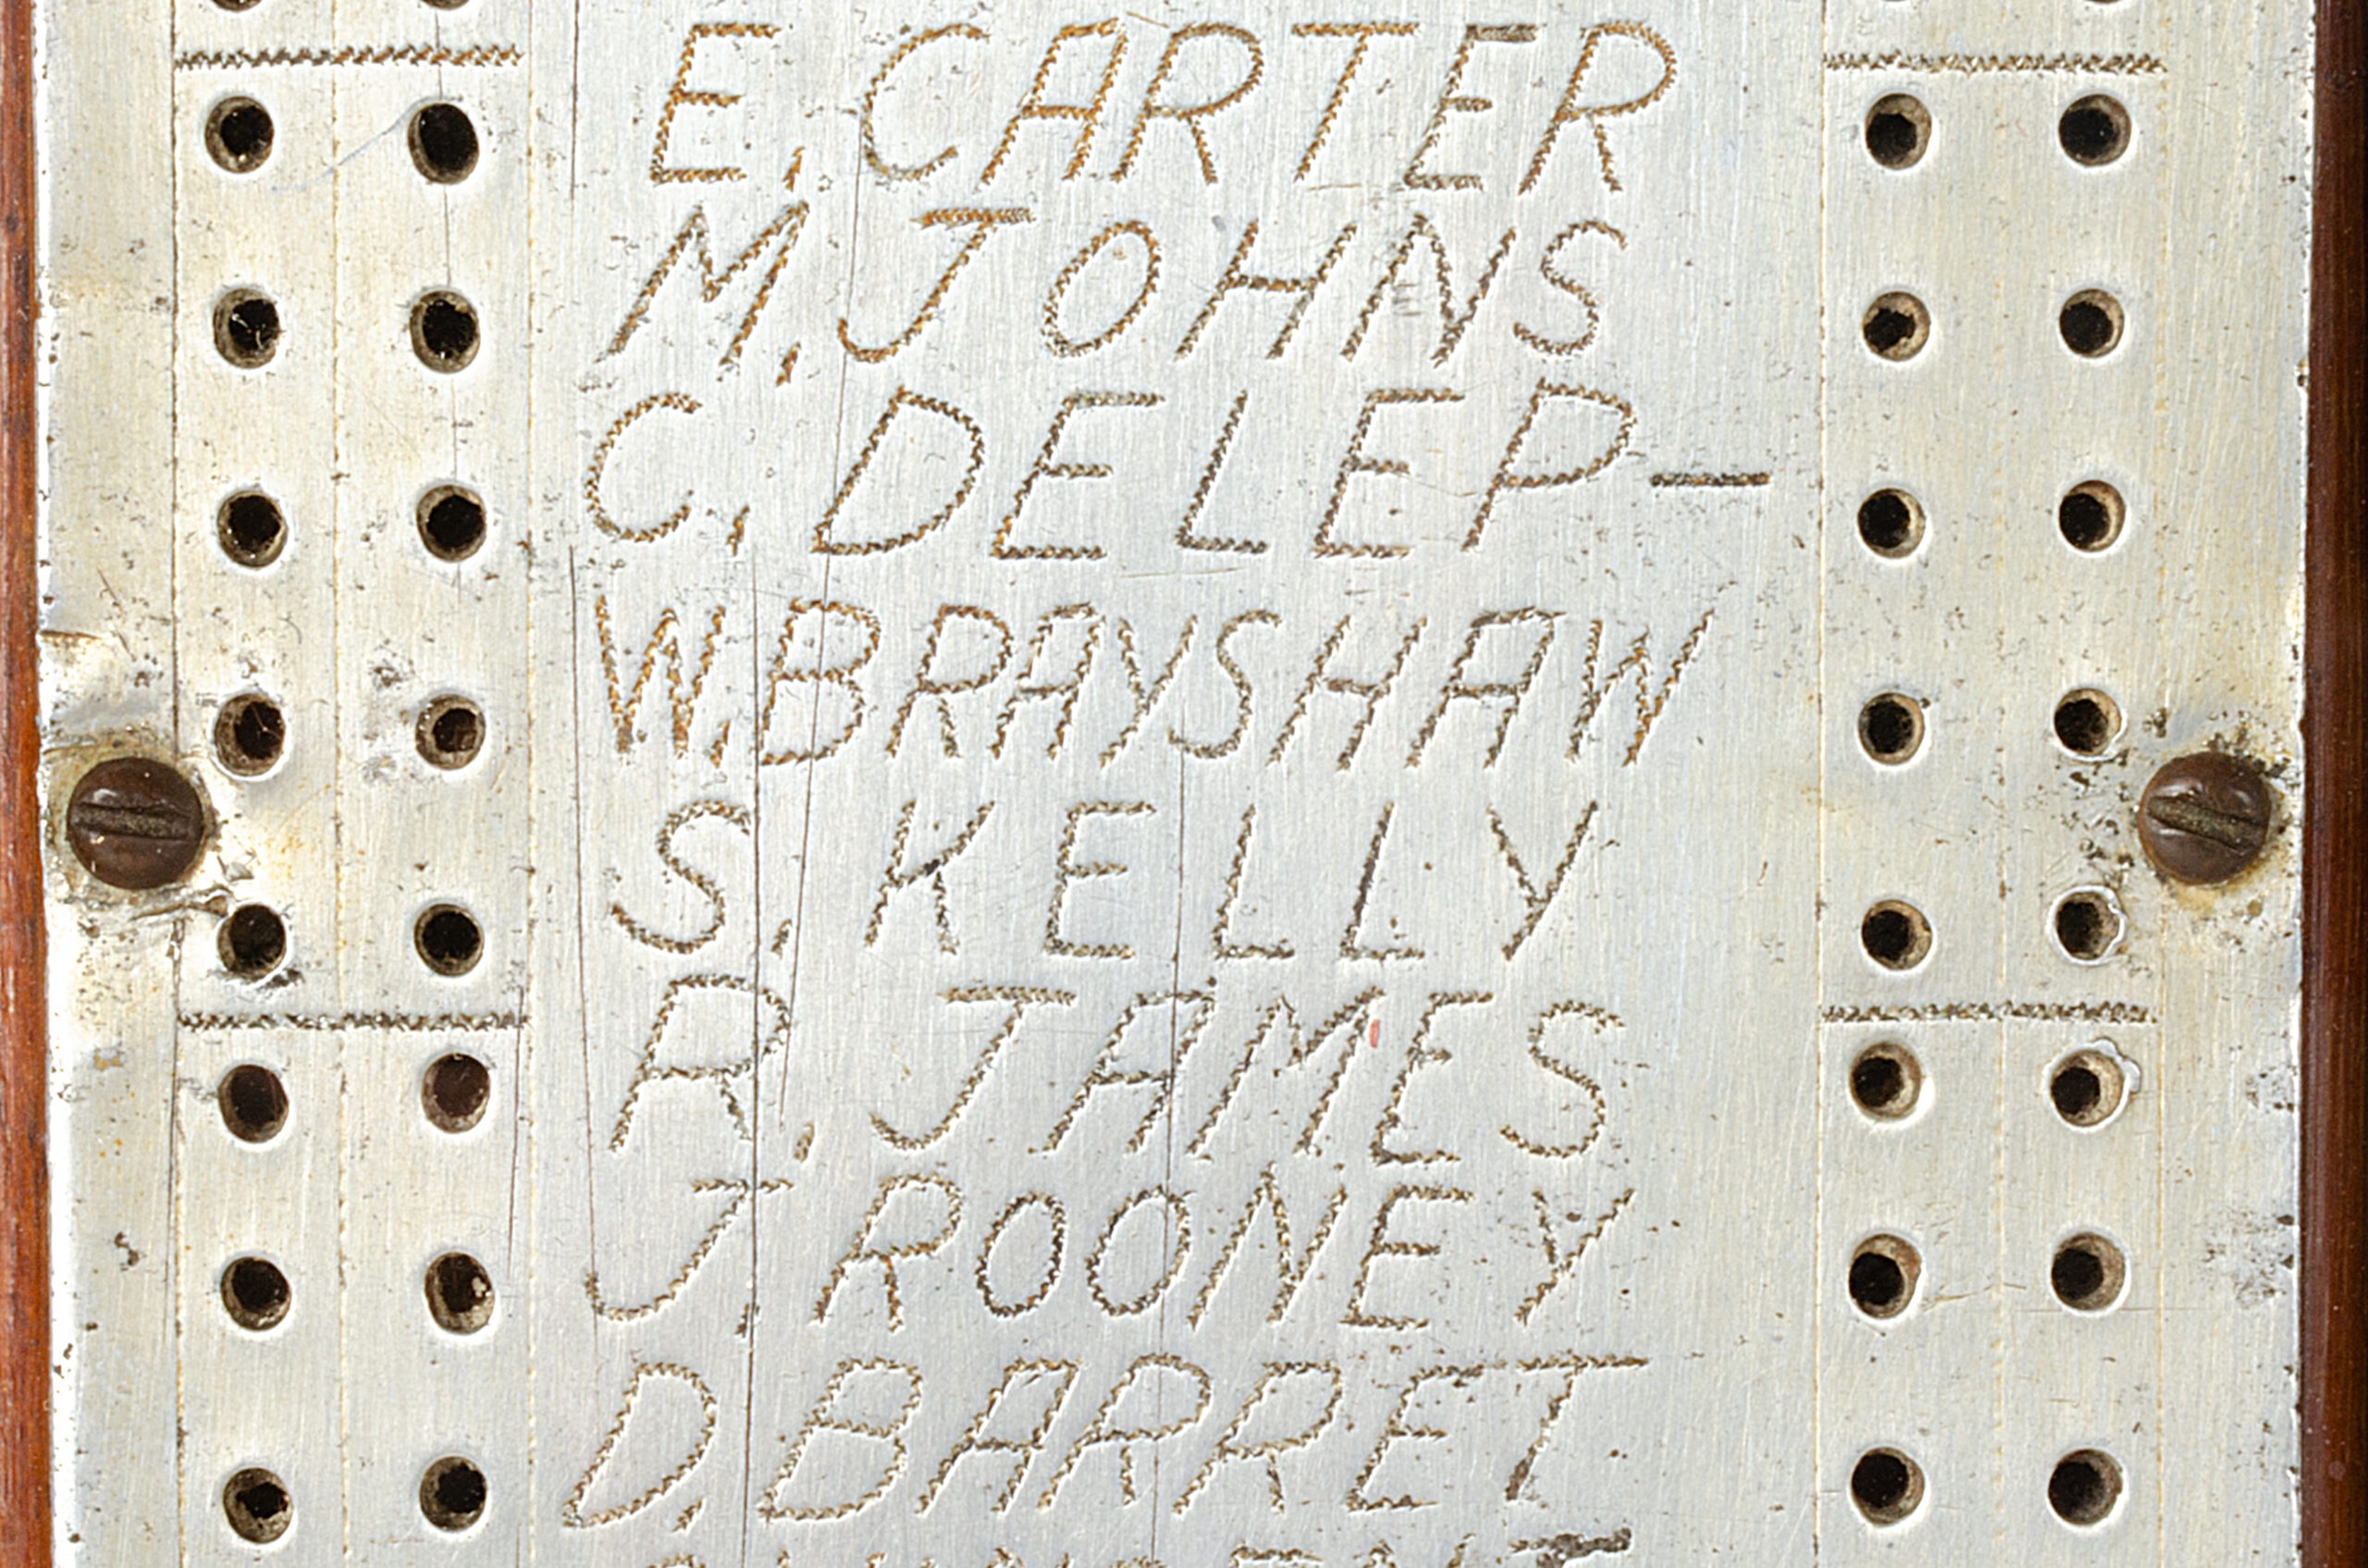 E. CARTER
M. JOHNS
C. DELEP-
W. BRAYSHAW
S. KELLY
R. JAMES
J. ROONEY
D. BARRET